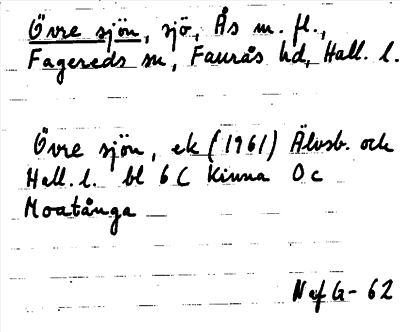 Övre sjön, sjö, Ås m. fl.,
Fagereds sn, Faurås hd, Hall. l.
Övre sjön, ek (1961) Älvsb. och
Hall. l. bl 6 C Kinna 0 c
Moatånga
N af G- 62